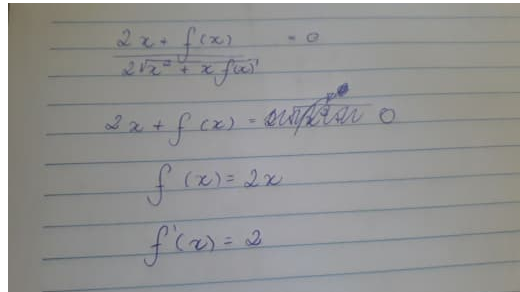 (2x + f(x)) / (2√(x² + x f(x))) = 0
2x + f(x) = 0
f(x) = 2x
f'(x) = 2